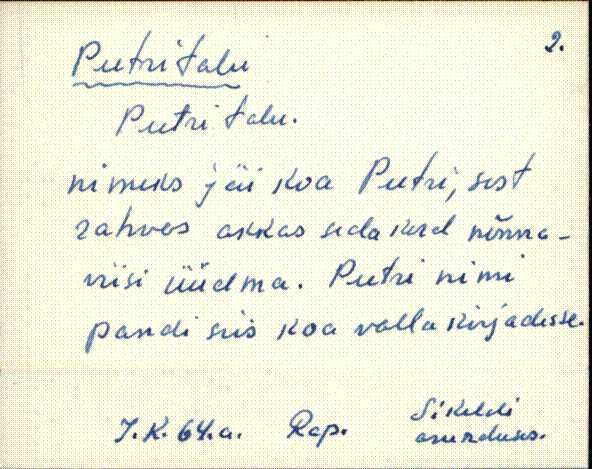 2.
Peetri talu
Peetri talu.
nimeks jäi koa Peetri, sest
rahvas akkas seda kord nõnna-
viisi üüdma. Peetri nimi
pandi siis koa valla kirjadesse.
J.K. 64.a. Rap. Sikeldi
asunduses.